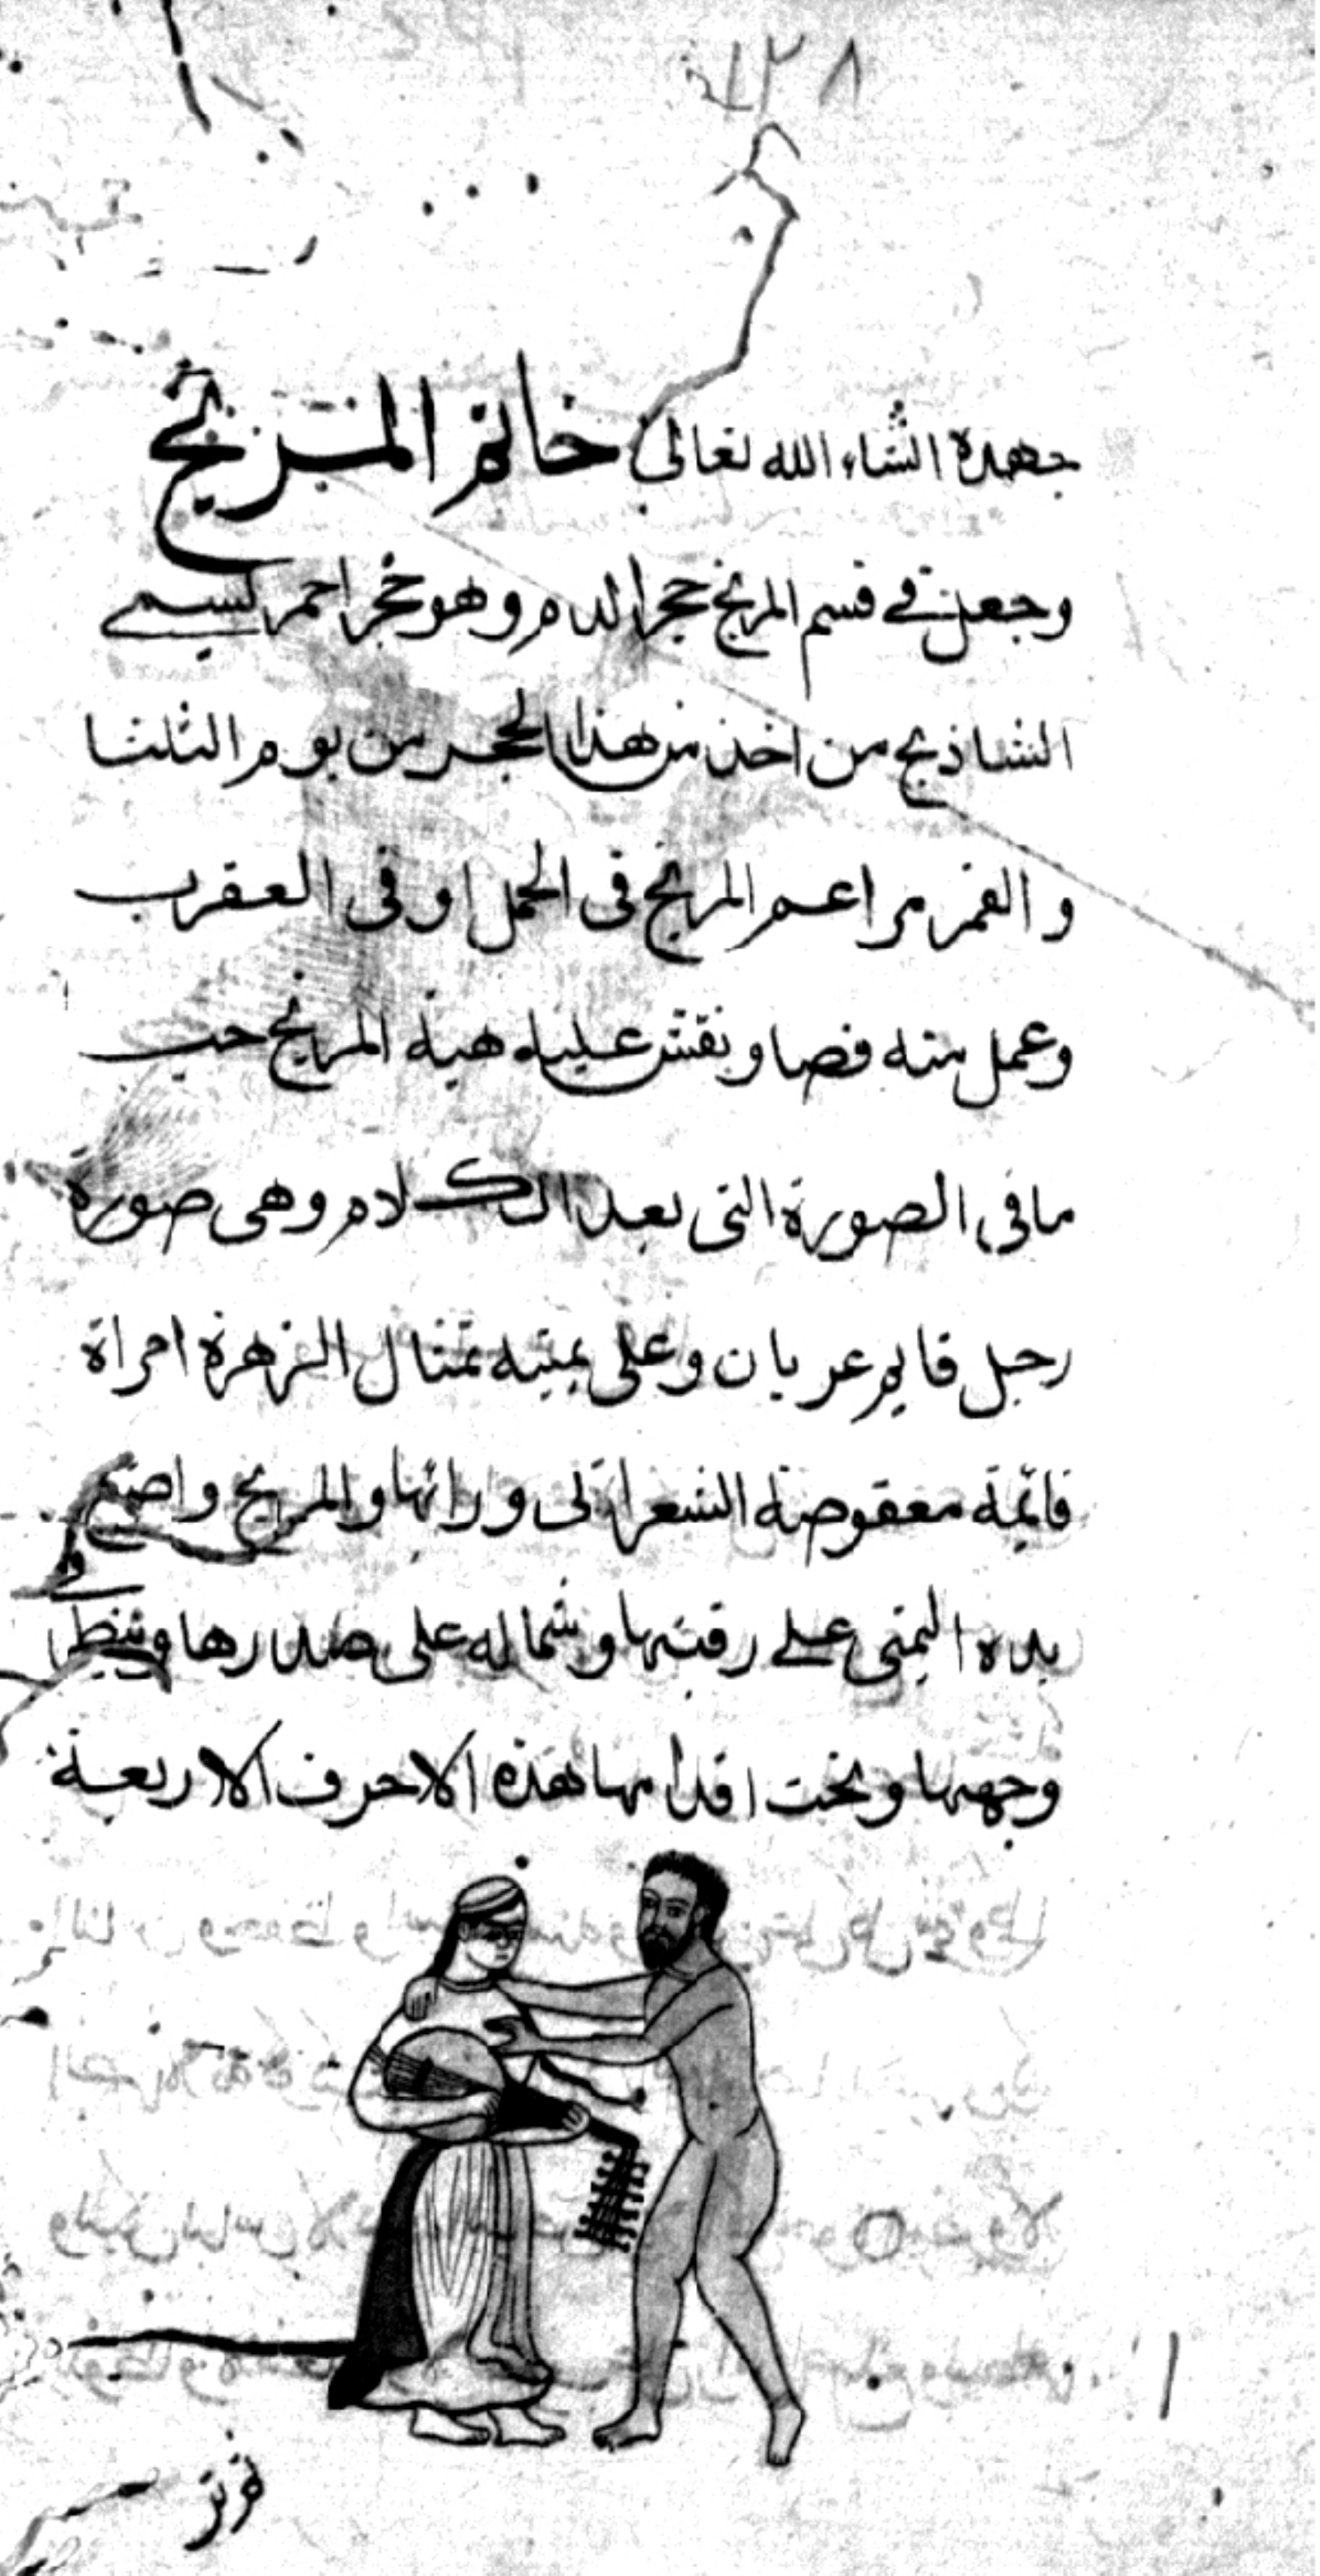 ٢٣٨
جهده انشاء الله تعالى خاتم المريخ
وجعل في قسم المريخ حجر الدم وهو حجر احمر يسمي
الشاذنج من اخذ من هذا الحجر من يوم الثلثا
و القمر مراعم المريخ فى الحمل او فى العقرب
وعمل منه فصا ونقش عليه هية المريخ حسب
مافى الصورة التى بعد الكلام وهى صورة
رجل قايم عريان وعلى يمينه تمثال الزهرة امراة
قائمة معقوصة الشعر الى ورائها والمريخ واضع
يده اليمنى على رقبتها وشماله على صدرها وينظر في
وجهها وتحت اقدامها هذه الاحرف الاربعة